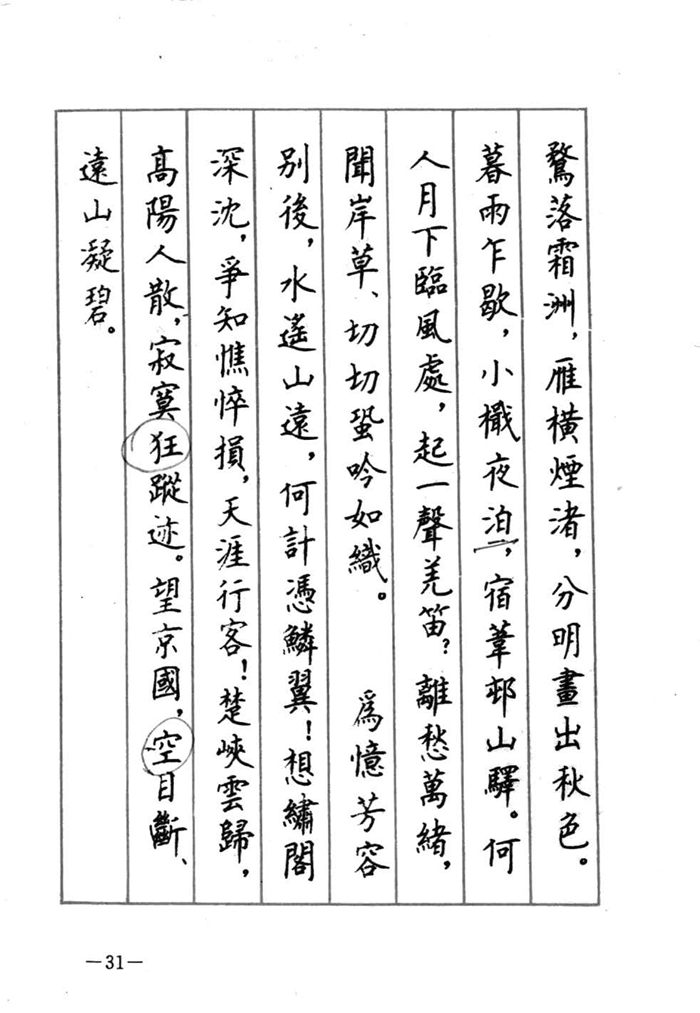 鶩落霜洲，雁橫煙渚，分明畫出秋色。
暮雨乍歇，小檝夜泊，宿葦邨山驛。何
人月下臨風處，起一聲羌笛？離愁萬緒，
聞岸草、切切蛩吟如織。　　為憶芳容
別後，水遙山遠，何計憑鱗翼！想繡閣
深沈，爭知憔悴損，天涯行客！楚峽雲歸，
高陽人散，寂寞狂蹤迹。望京國，空目斷、
遠山凝碧。
—31—